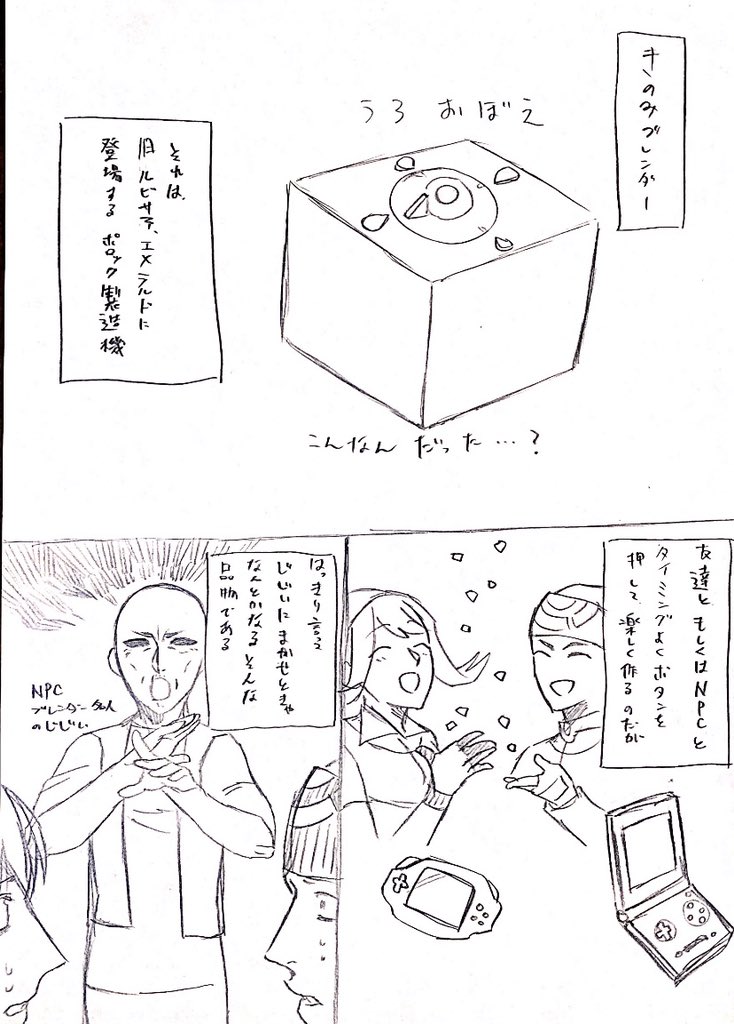 きのみブレンダー
うろおぼえ
それは、
旧ルビサファ、エメラルドに
登場するポロック製造機
こんなんだった…?
友達ともしくはNPCと
タイミングよくボタンを
押して、楽しく作るのだが
はっきり言う
じじいにまかせときゃ
なんとかなるそんな
品物である
NPC
ブレンダー名人
のじじい